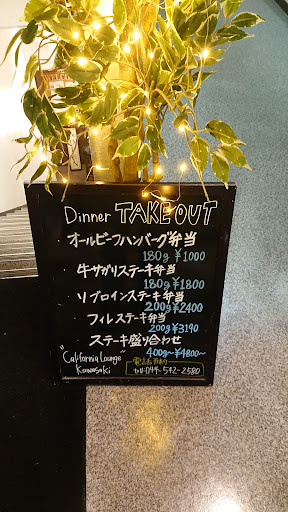 WELCOME
Dinner TAKE OUT
オールビーフハンバーグ弁当
180g ¥1000
牛サガリステーキ弁当
180g ¥1800
リブロインステーキ弁当
200g ¥2400
フィレステーキ弁当
200g ¥3190
ステーキ盛り合わせ
400g~ ¥4800~
"California Lounge"
Kawasaki
電話予約
tel-044-542-2580